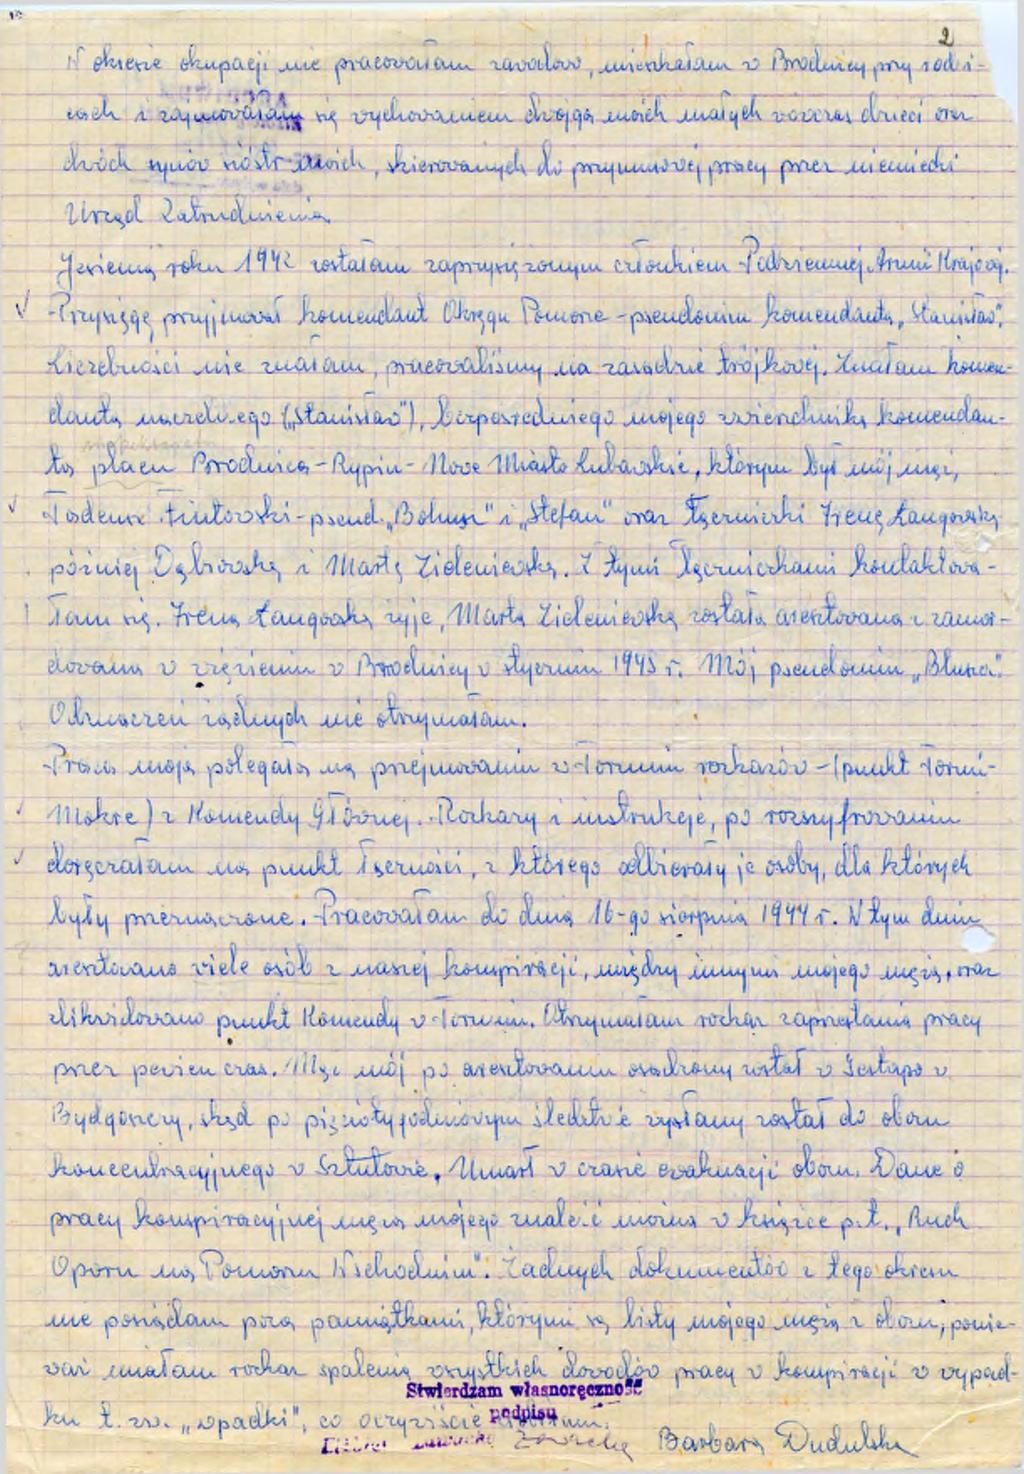 2
W okresie okupacji nie pracowałam zawodowo, mieszkałam w Brodnicy przy rodzi-
cach i zajmowałam się wychowaniem dwojga moich małych wówczas dzieci oraz
dwóch synów sióstr moich, skierowanych do przymusowej pracy przez niemiecki
Urząd Zatrudnienia
Jesienią roku 1942 zostałam zaprzysiężonym członkiem Podziemnej Armii Krajowej.
Przysięgę przyjmował komendant Okręgu Pomorze - pseudonim komendanta „Stanisław".
Liczebności nie znałam, pracowaliśmy na zasadzie trójkowej. Znałam komen-
danta naczelnego („Stanisław"), bezpośredniego mojego zwierzchnika komendan-
ta placu Brodnica - Rypin - Nowe Miasto Lubawskie, którym był mój mąż,
Tadeusz Fiutowski - pseud. „Bohusz" i „Stefan" oraz łączniczki Irenę Łangowską
później Dąbrowską i Martę Zieleniewską. Z tymi łączniczkami kontaktowa-
łam się. Irena Łangowska żyje, Marta Zieleniewska została aresztowana i zamor-
dowana w więzieniu w Brodnicy w styczniu 1945 r. Mój pseudonim „Bluszcz".
Odznaczeń żadnych nie otrzymałam.
Praca moja polegała na przejmowaniu w Toruniu rozkazów - (punkt Toruń-
Mokre) z Komendy Głównej. Rozkazy i instrukcje, po rozszyfrowaniu
doręczałam na punkt łączności, z którego odbierały je osoby, dla których
były przeznaczone. Pracowałam do dnia 16-go sierpnia 1944 r. W tym dniu
aresztowano wiele osób z naszej konspiracji, między innymi mojego męża, oraz
zlikwidowano punkt Komendy w Toruniu. Otrzymałam rozkaz zaprzestania pracy
przez pewien czas. Mąż mój po aresztowaniu osadzony został w Gestapo w
Bydgoszczy, skąd po pięciotygodniowym śledztwie wysłany został do obozu
koncentracyjnego w Sztutowie. Umarł w czasie ewakuacji obozu. Dane o
pracy konspiracyjnej męża mojego znaleźć można w książce p.t. „Ruch
Oporu na Pomorzu Wschodnim". Żadnych dokumentów z tego okresu
nie posiadam poza pamiątkami, którymi są listy mojego męża z obozu, ponie-
waż miałam rozkaz spalenia wszystkich dowodów pracy w konspiracji w wypad-
ku t.zw. „wpadki", co oczywiście
Stwierdzam własnoręczność
podpisu
Barbara Dudulska